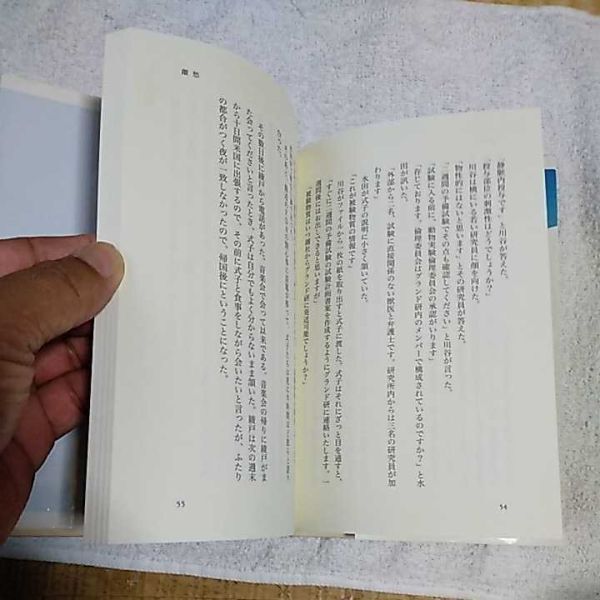 「静脈内投与です」と川谷が答えた。
「投与部位の刺激性はどうでしょうか?」
川谷は横にいる若い研究員に顔を向けた。
「物性的にはないと思います」とその研究員が答えた。
「予備試験でその点も確認してください」と川谷が言った。
「試験に入る前に、動物実験倫理委員会の承認がいります」
「存じております。倫理委員会はグランド研内のメンバーで構成されているのですか?」と水
田が訊いた。
「外部から二名、試験に直接関係のない獣医と弁護士です。研究所内からは三名の研究員が加
わります」
水田が式子の説明に小さく頷いていた。
「これが被験物質の情報です」
川谷がファイルから一枚の紙を取り出すと式子に渡した。式子はそれにざっと目を通すと、
「すぐに二週間の予備試験の試験計画書案を作成するようにグランド研に連絡いたします。一
週間後にはお出しできると思いますが」
「被験物質はいつ御社からグランド研に発送可能でしょうか?」
54
離愁
会った。
その数日後に綾戸から電話があった。音楽会で会って以来である。音楽会の帰りに綾戸がま
た会ってくださいと言ったとき、式子は自分でもよく分からないまま頷いた。綾戸は次の週末
から十日間米国に出張するので、その前に式子と食事をしながら会いたいと言ったが、ふたり
の都合がつく夜が一致しなかったので、帰国後にということになった。
55